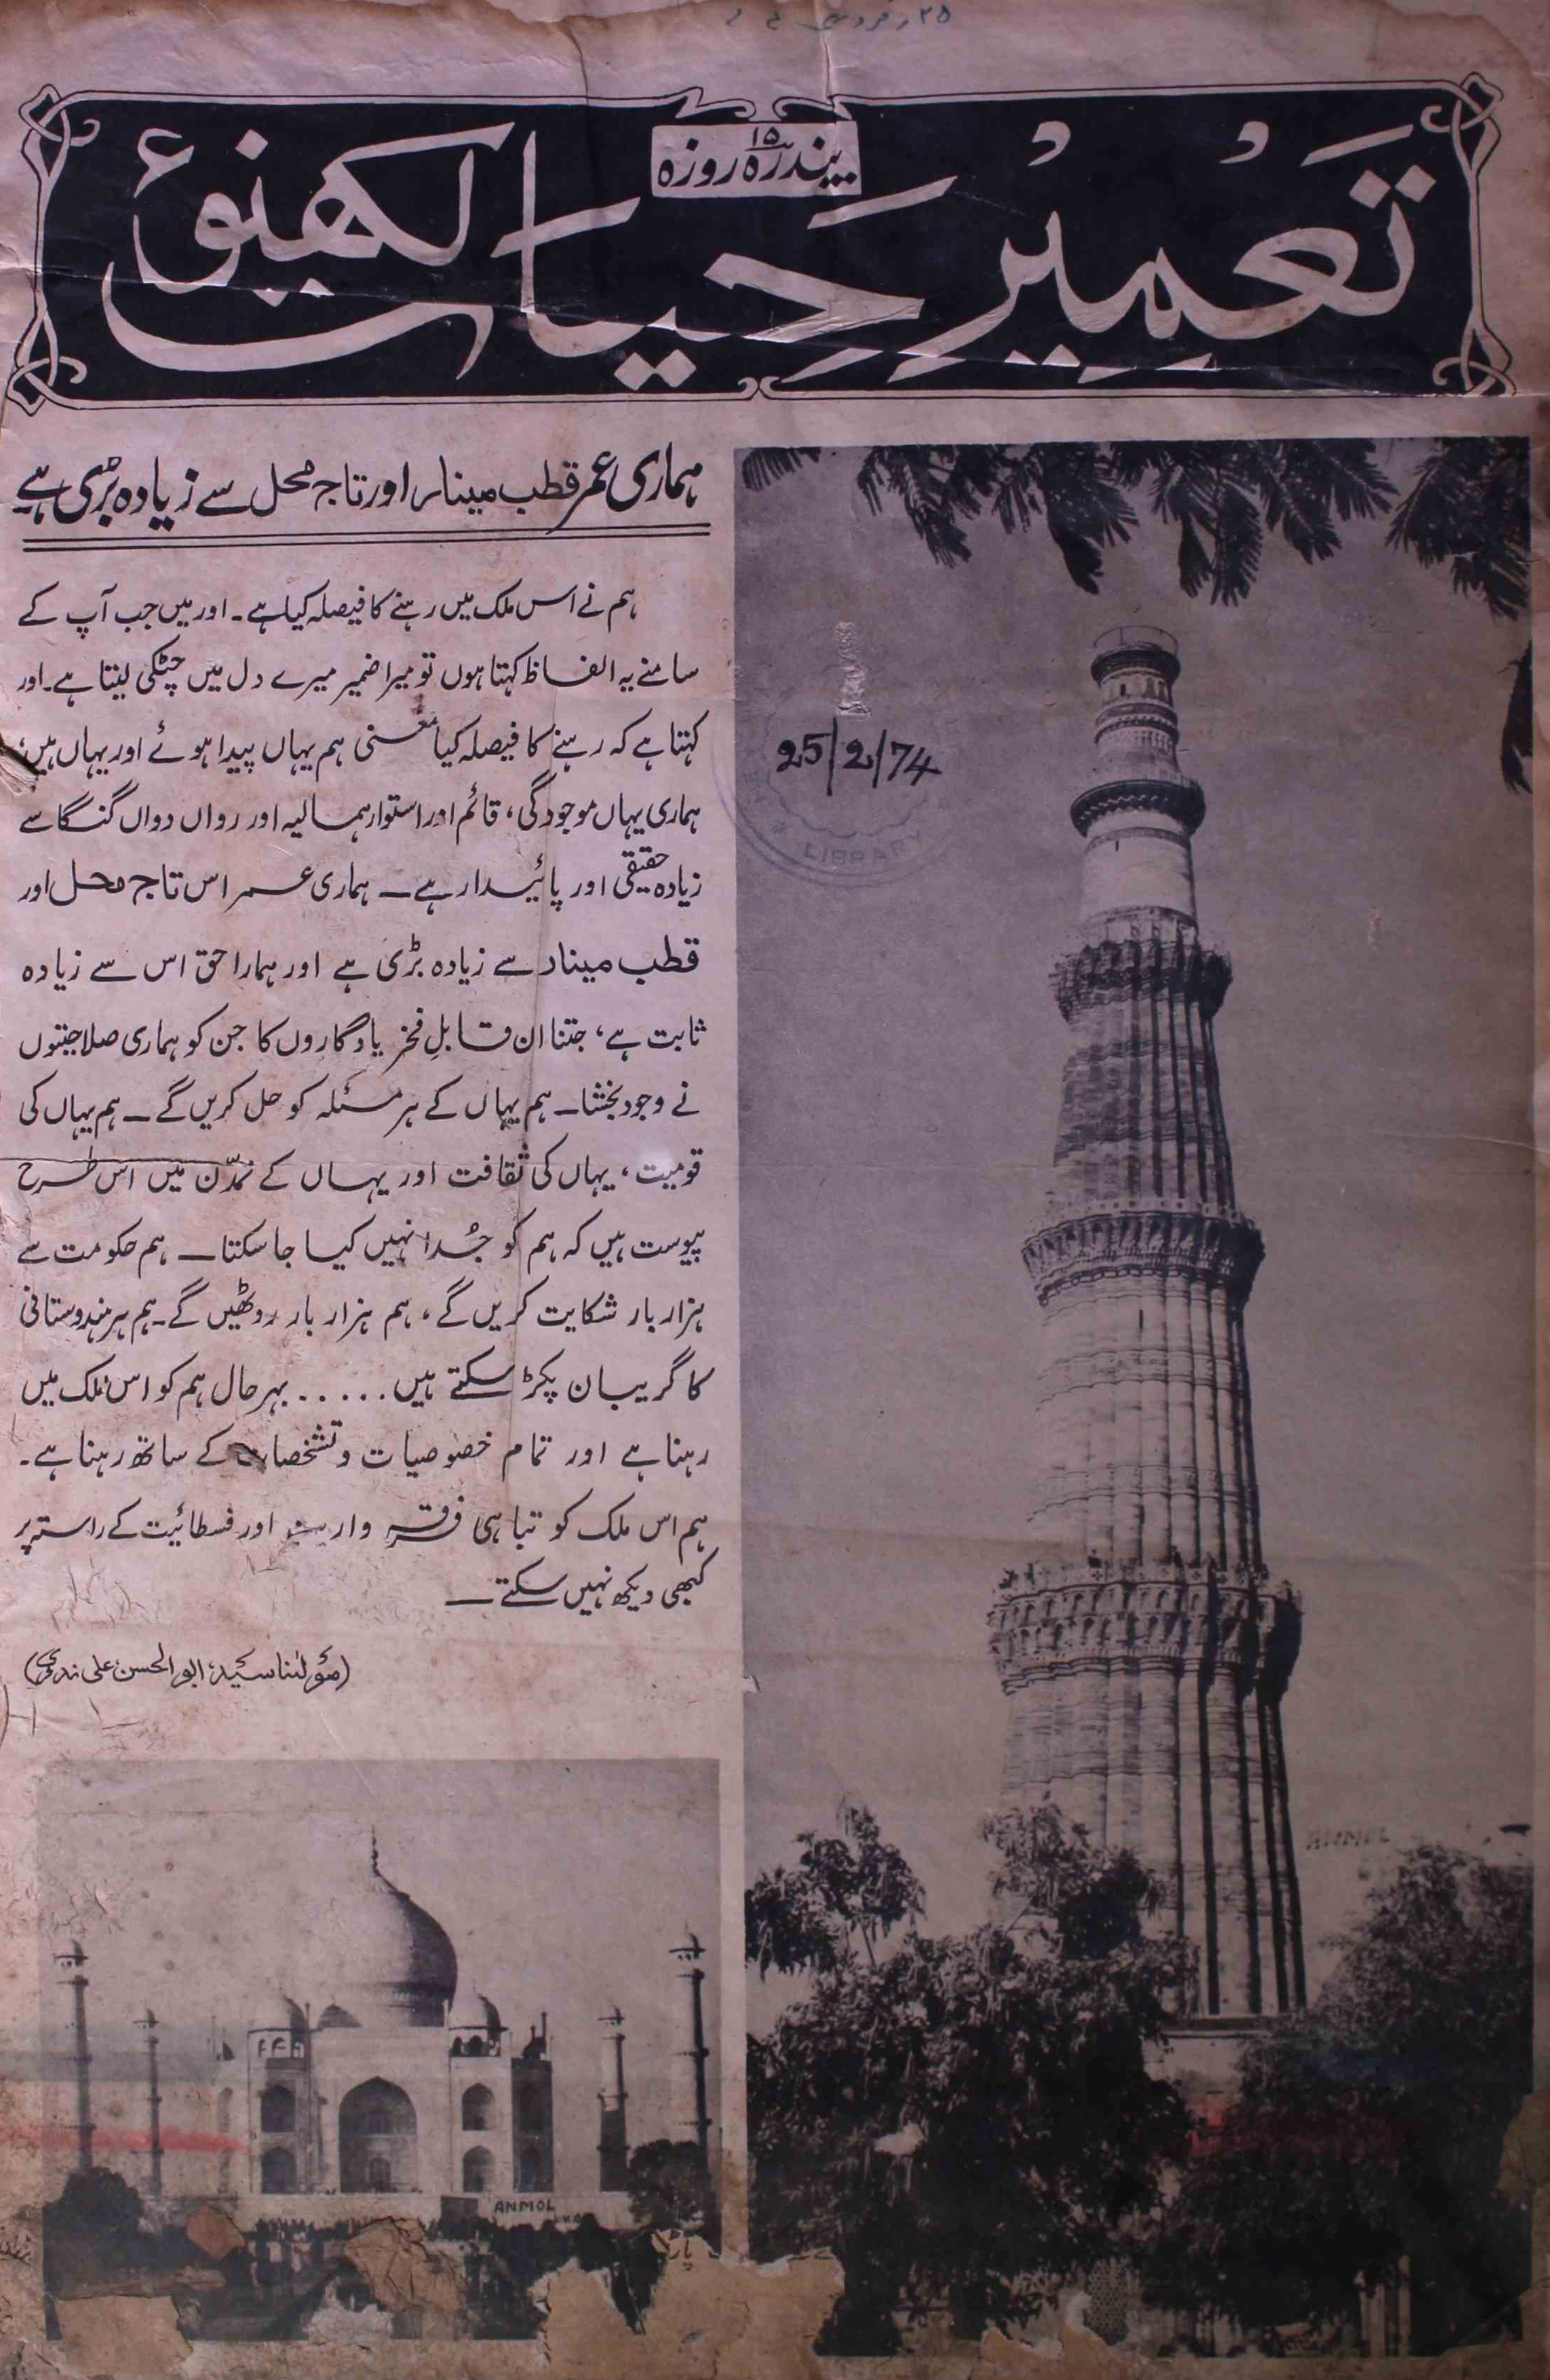 ۲۵ر فروری ۷۴
پندرہ ۱۵ روزہ
تعمیر حیات لکھنؤ
ہماری عمر قطب مینار اور تاج محل سے زیادہ بڑی ہے
ہم نے اس ملک میں رہنے کا فیصلہ کیا ہے۔ اور میں جب آپ کے
سامنے یہ الفاظ کہتا ہوں تو میرا ضمیر میرے دل میں چٹکی لیتا ہے۔ اور
کہتا ہے کہ رہنے کا فیصلہ کیا معنی ہم یہاں پیدا ہوئے اور یہاں ہیں،
ہماری یہاں موجودگی، قائم اور استوار ہمالیہ اور رواں دواں گنگا سے
زیادہ حقیقی اور پائیدار ہے۔ ہماری عمر اس تاج محل اور
قطب مینار سے زیادہ بڑی ہے اور ہمارا حق اس سے زیادہ
ثابت ہے، جتنا ان قابلِ فخر یادگاروں کا جن کو ہماری صلاحیتوں
نے وجود بخشا۔ ہم یہاں کے ہر مسئلہ کو حل کریں گے۔ ہم یہاں کی
قومیت، یہاں کی ثقافت اور یہاں کے تمدّن میں اس طرح
پیوست ہیں کہ ہم کو جُدا نہیں کیا جا سکتا۔ ہم حکومت سے
ہزار بار شکایت کریں گے، ہم ہزار بار روٹھیں گے۔ ہم ہر ہندوستانی
کا گریبان پکڑ سکتے ہیں ..... بہر حال ہم کو اس ملک میں
رہنا ہے اور تمام خصوصیات و تشخصات کے ساتھ رہنا ہے۔
ہم اس ملک کو تباہی فرقہ واریت اور فسطائیت کے راستہ پر
کبھی دیکھ نہیں سکتے۔
(مولٰنا سید ابوالحسن علی ندوی)
25/2/74
LIBRARY
ANMOL
ANMOL
LKO